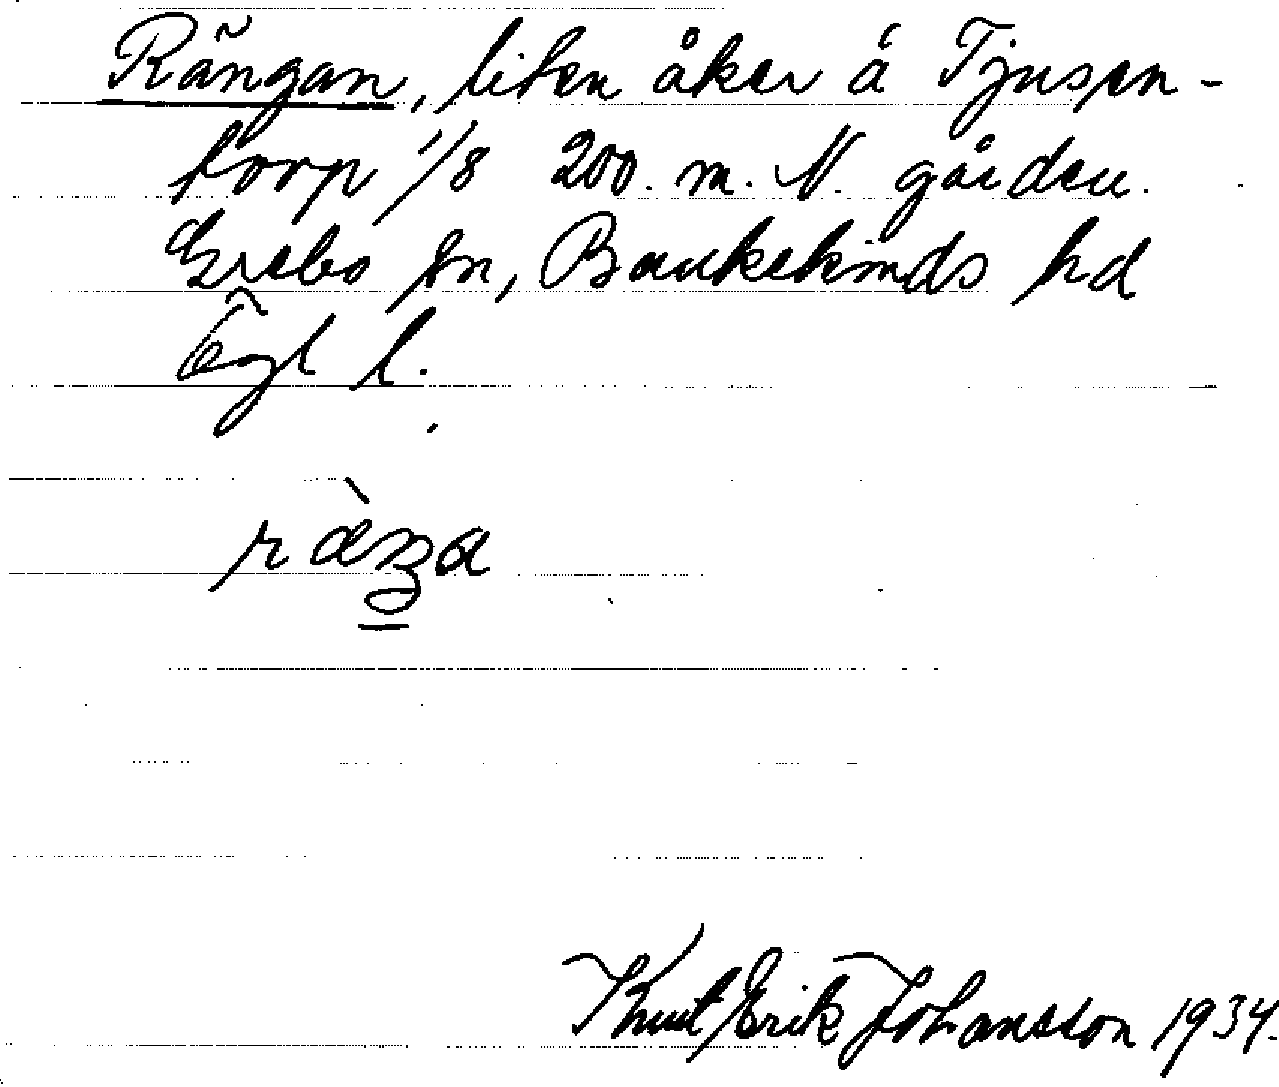 Rängan, liten åker å Tjusen-
torp 1/8 200. m. N. gården.
Grebo sn, Bankekinds hd
Ögl l.
Knut Erik Johansson 1934.